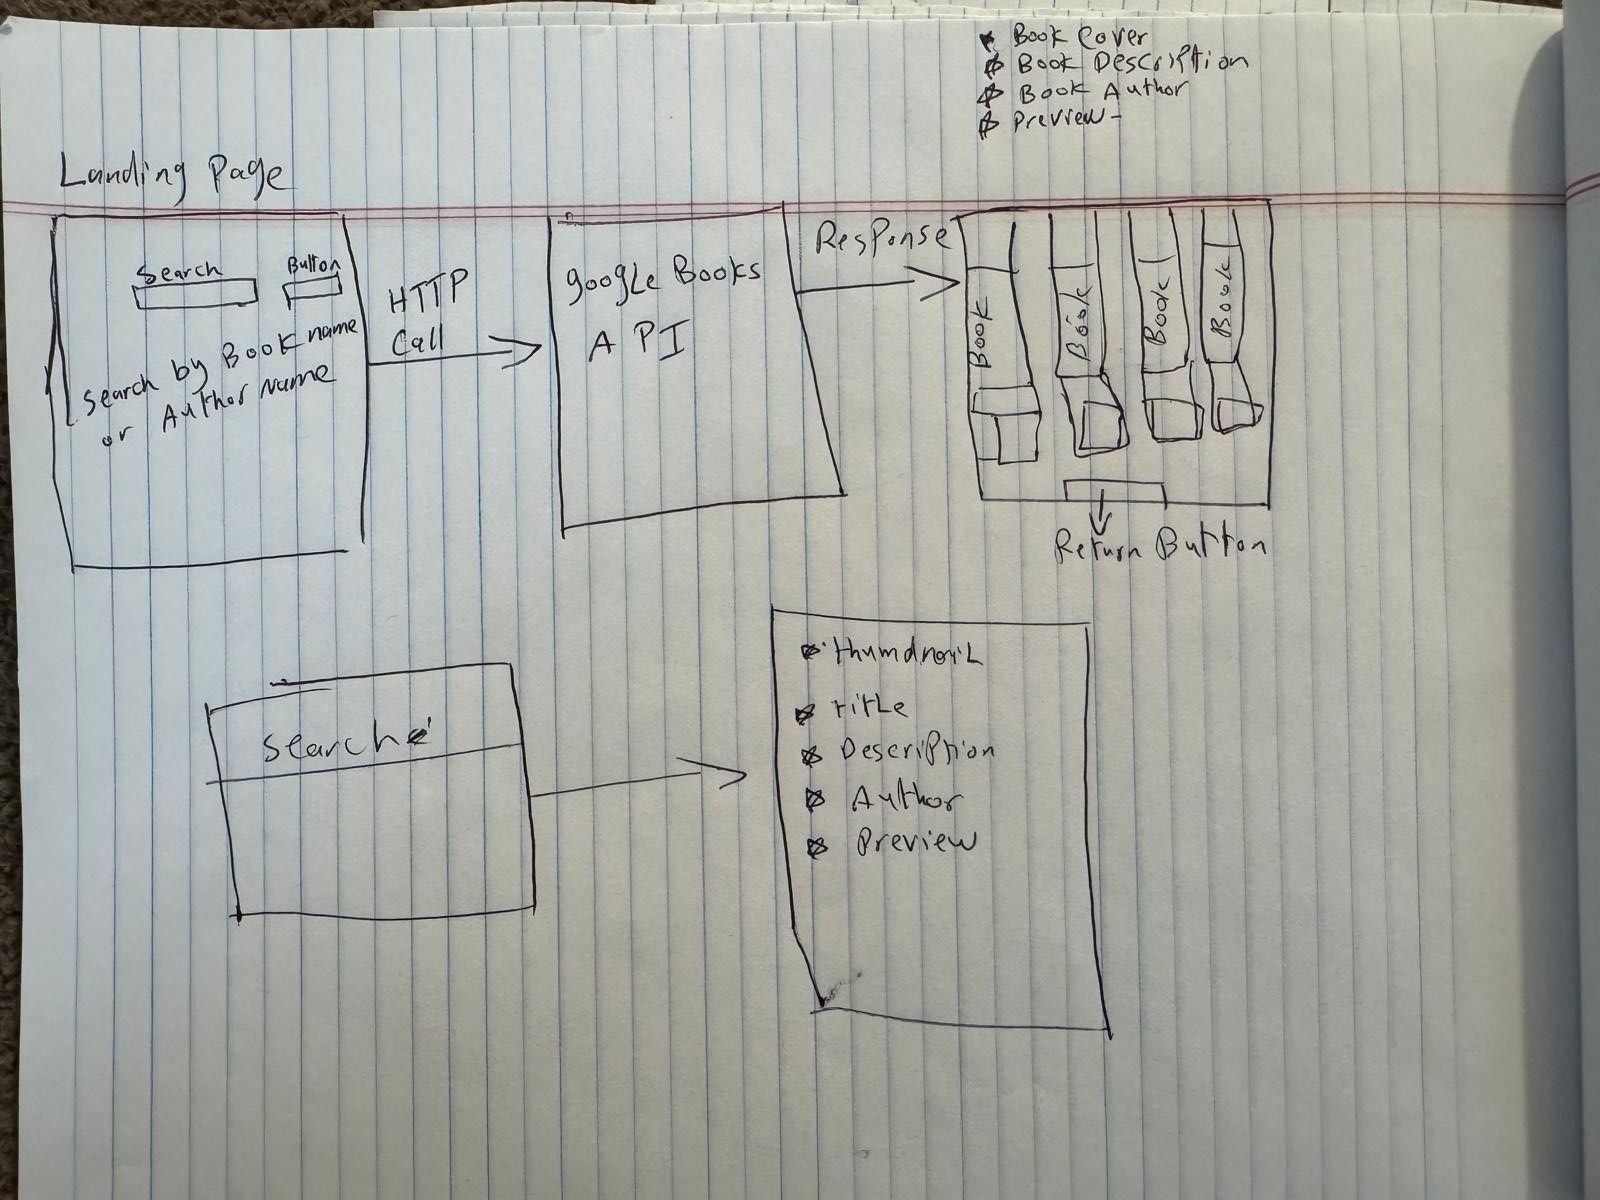 Book Cover
Book Description
Book Author
Preview-
Landing Page
Search
Button
Search by Book name
or Author Name
HTTP
Call
google Books
API
Response
Book
Book
Book
Book
Return Button
Search
thumdnail
title
Description
Author
Preview